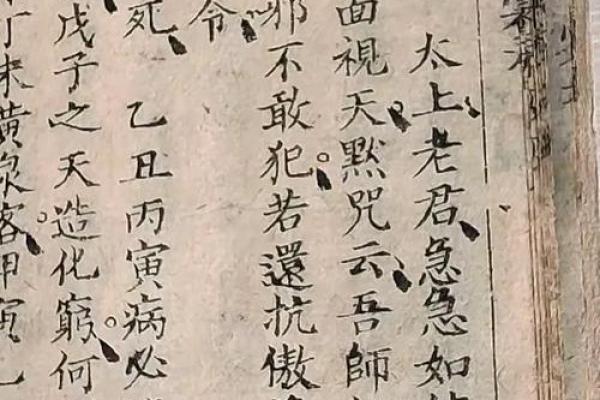 太上老君急急如
面視天默咒云吾師
邪不敢犯若還抗傲
令
死 乙丑丙寅病必
戊子之天造化窮何
丁未黄泉客甲寅